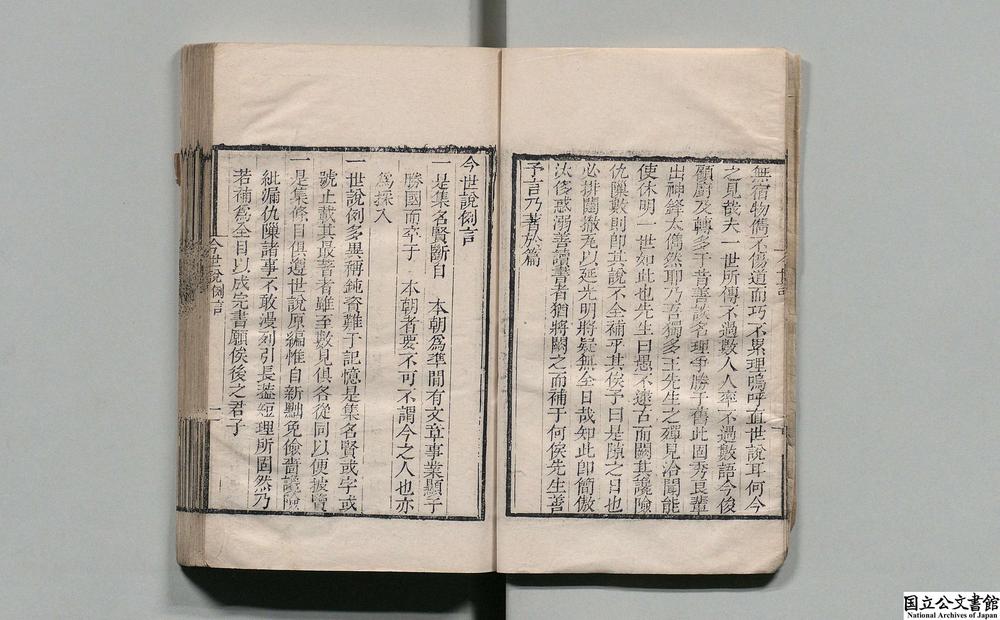 無宿物儁不傷道而巧不累理嗚呼直世說耳何今
之見哉夫一世所傳不過數人人率不過數語今後
顧廚及轉多于昔善談名理爭勝于舊此固秀良輩
出神鋒太儁然耶乃吾獨多王先生之殫見洽聞能
使休明一世如此也先生曰愚不逮古而闕其讒險
仇隟數則即其說不全補乎其俟予曰是隙之日也
必排闥撤瓦以延光明將疑無全日哉知此即簡傲
汰侈惑溺善讀書者猶將闕之而補于何俟先生善
予言乃著於篇
今世說例言
一是集名賢斷自 本朝為準間有文章事業顯于
勝國而卒于 本朝者要不可不謂今之人也亦
為採入
一世說例多異稱鈍資難于記憶是集名賢或字或
號止載其最著者雖至數見俱各從同以便披覽
一是集條目俱遵世說原編惟自新黜免儉嗇讒險
紕漏仇隟諸事不敢漫列引長蓋短理所固然乃
若補為全目以成完書願俟後之君子
今世說例言
一
国立公文書館
National Archives of Japan